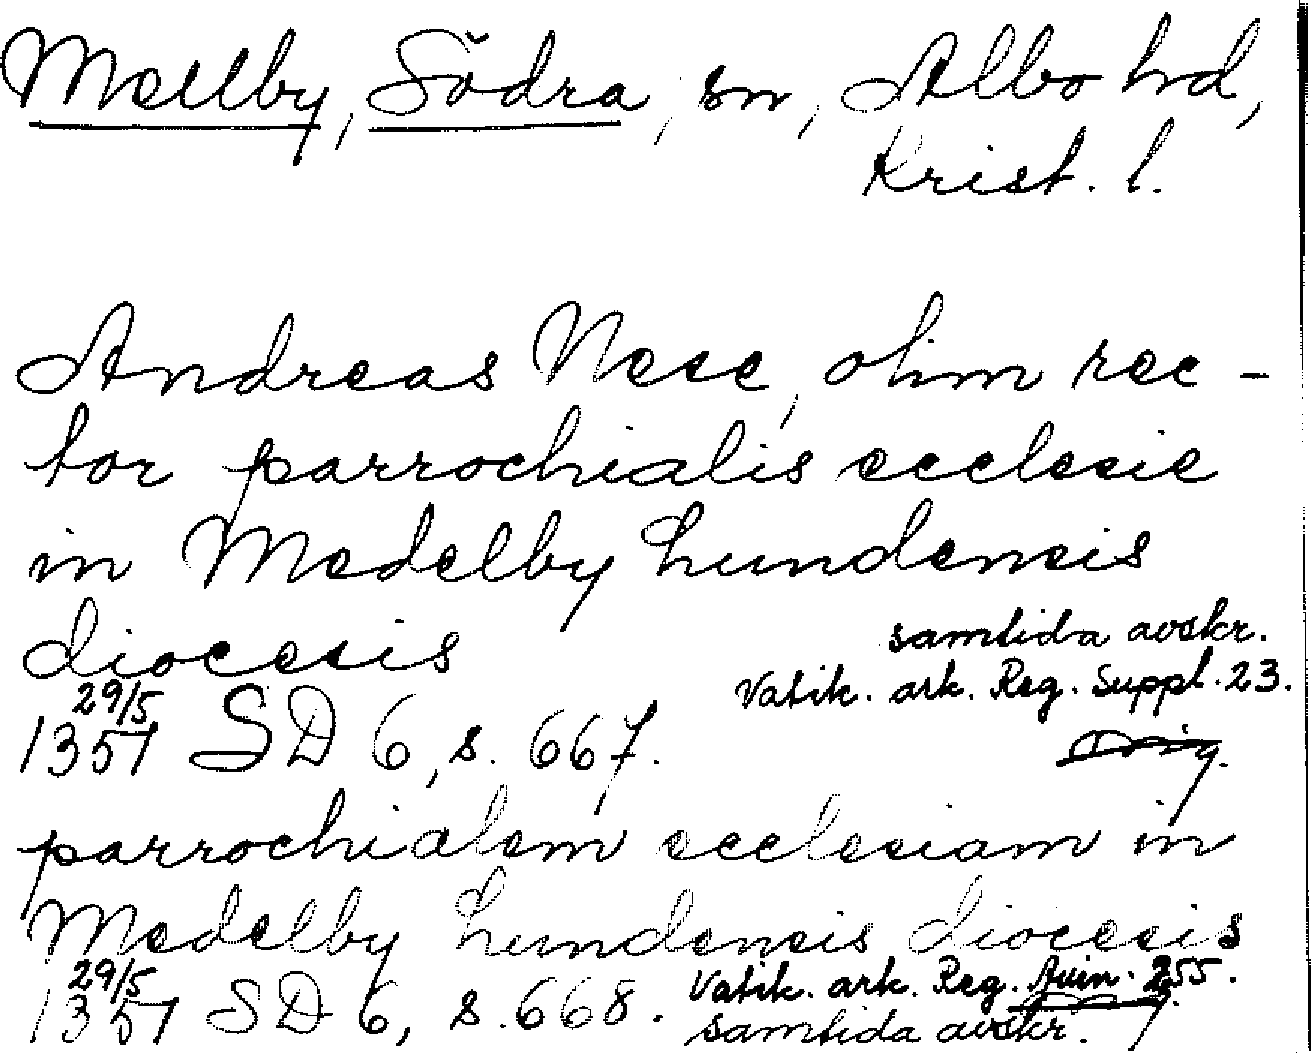 Mellby, Södra, sn, Albo hd,
Krist. l.
Andreas Nese, olim rec-
tor parrochialis ecclesie
in Medelby Lundensis
diocesis
samtida avskr.
Vatik. ark. Reg. Suppl. 23.
29/5
1357 SD 6, s. 667.
Orig.
parrochialem ecclesiam in
Medelby Lundensis diocesis
29/5
1357 SD 6, s. 668. Vatik. ark. Reg. Avin. 255.
samtida avskr.